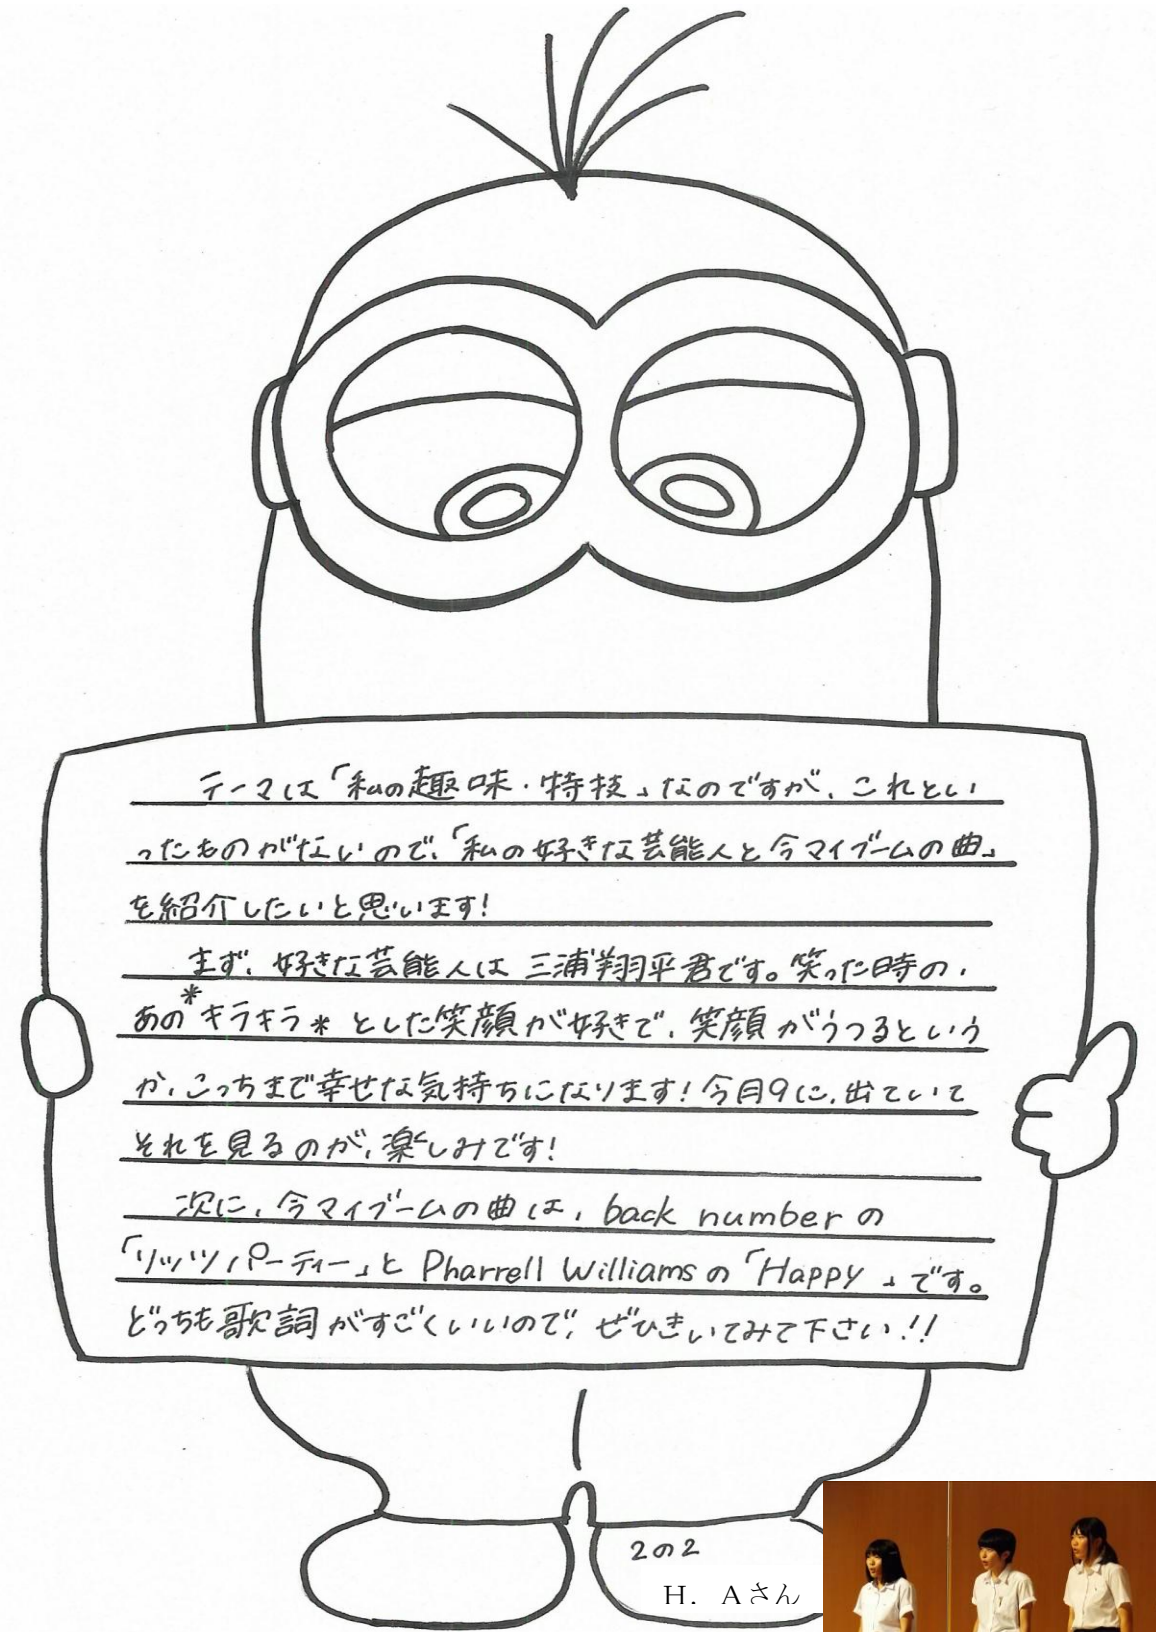 テーマは「私の趣味・特技」なのですが、これとい
ったものがないので、「私の好きな芸能人と今マイブームの曲」
を紹介したいと思います!
まず、好きな芸能人は三浦翔平君です。笑った時の、
あの*キラキラ*とした笑顔が好きで、笑顔がうつるという
か、こっちまで幸せな気持ちになります!今月9に、出ていて
それを見るのが、楽しみです!
次に、今マイブームの曲は、back numberの
「リッツパーティー」とPharrell Williamsの「Happy」です。
どっちも歌詞がすごくいいので、ぜひきいてみて下さい!!
2の2
H. Aさん